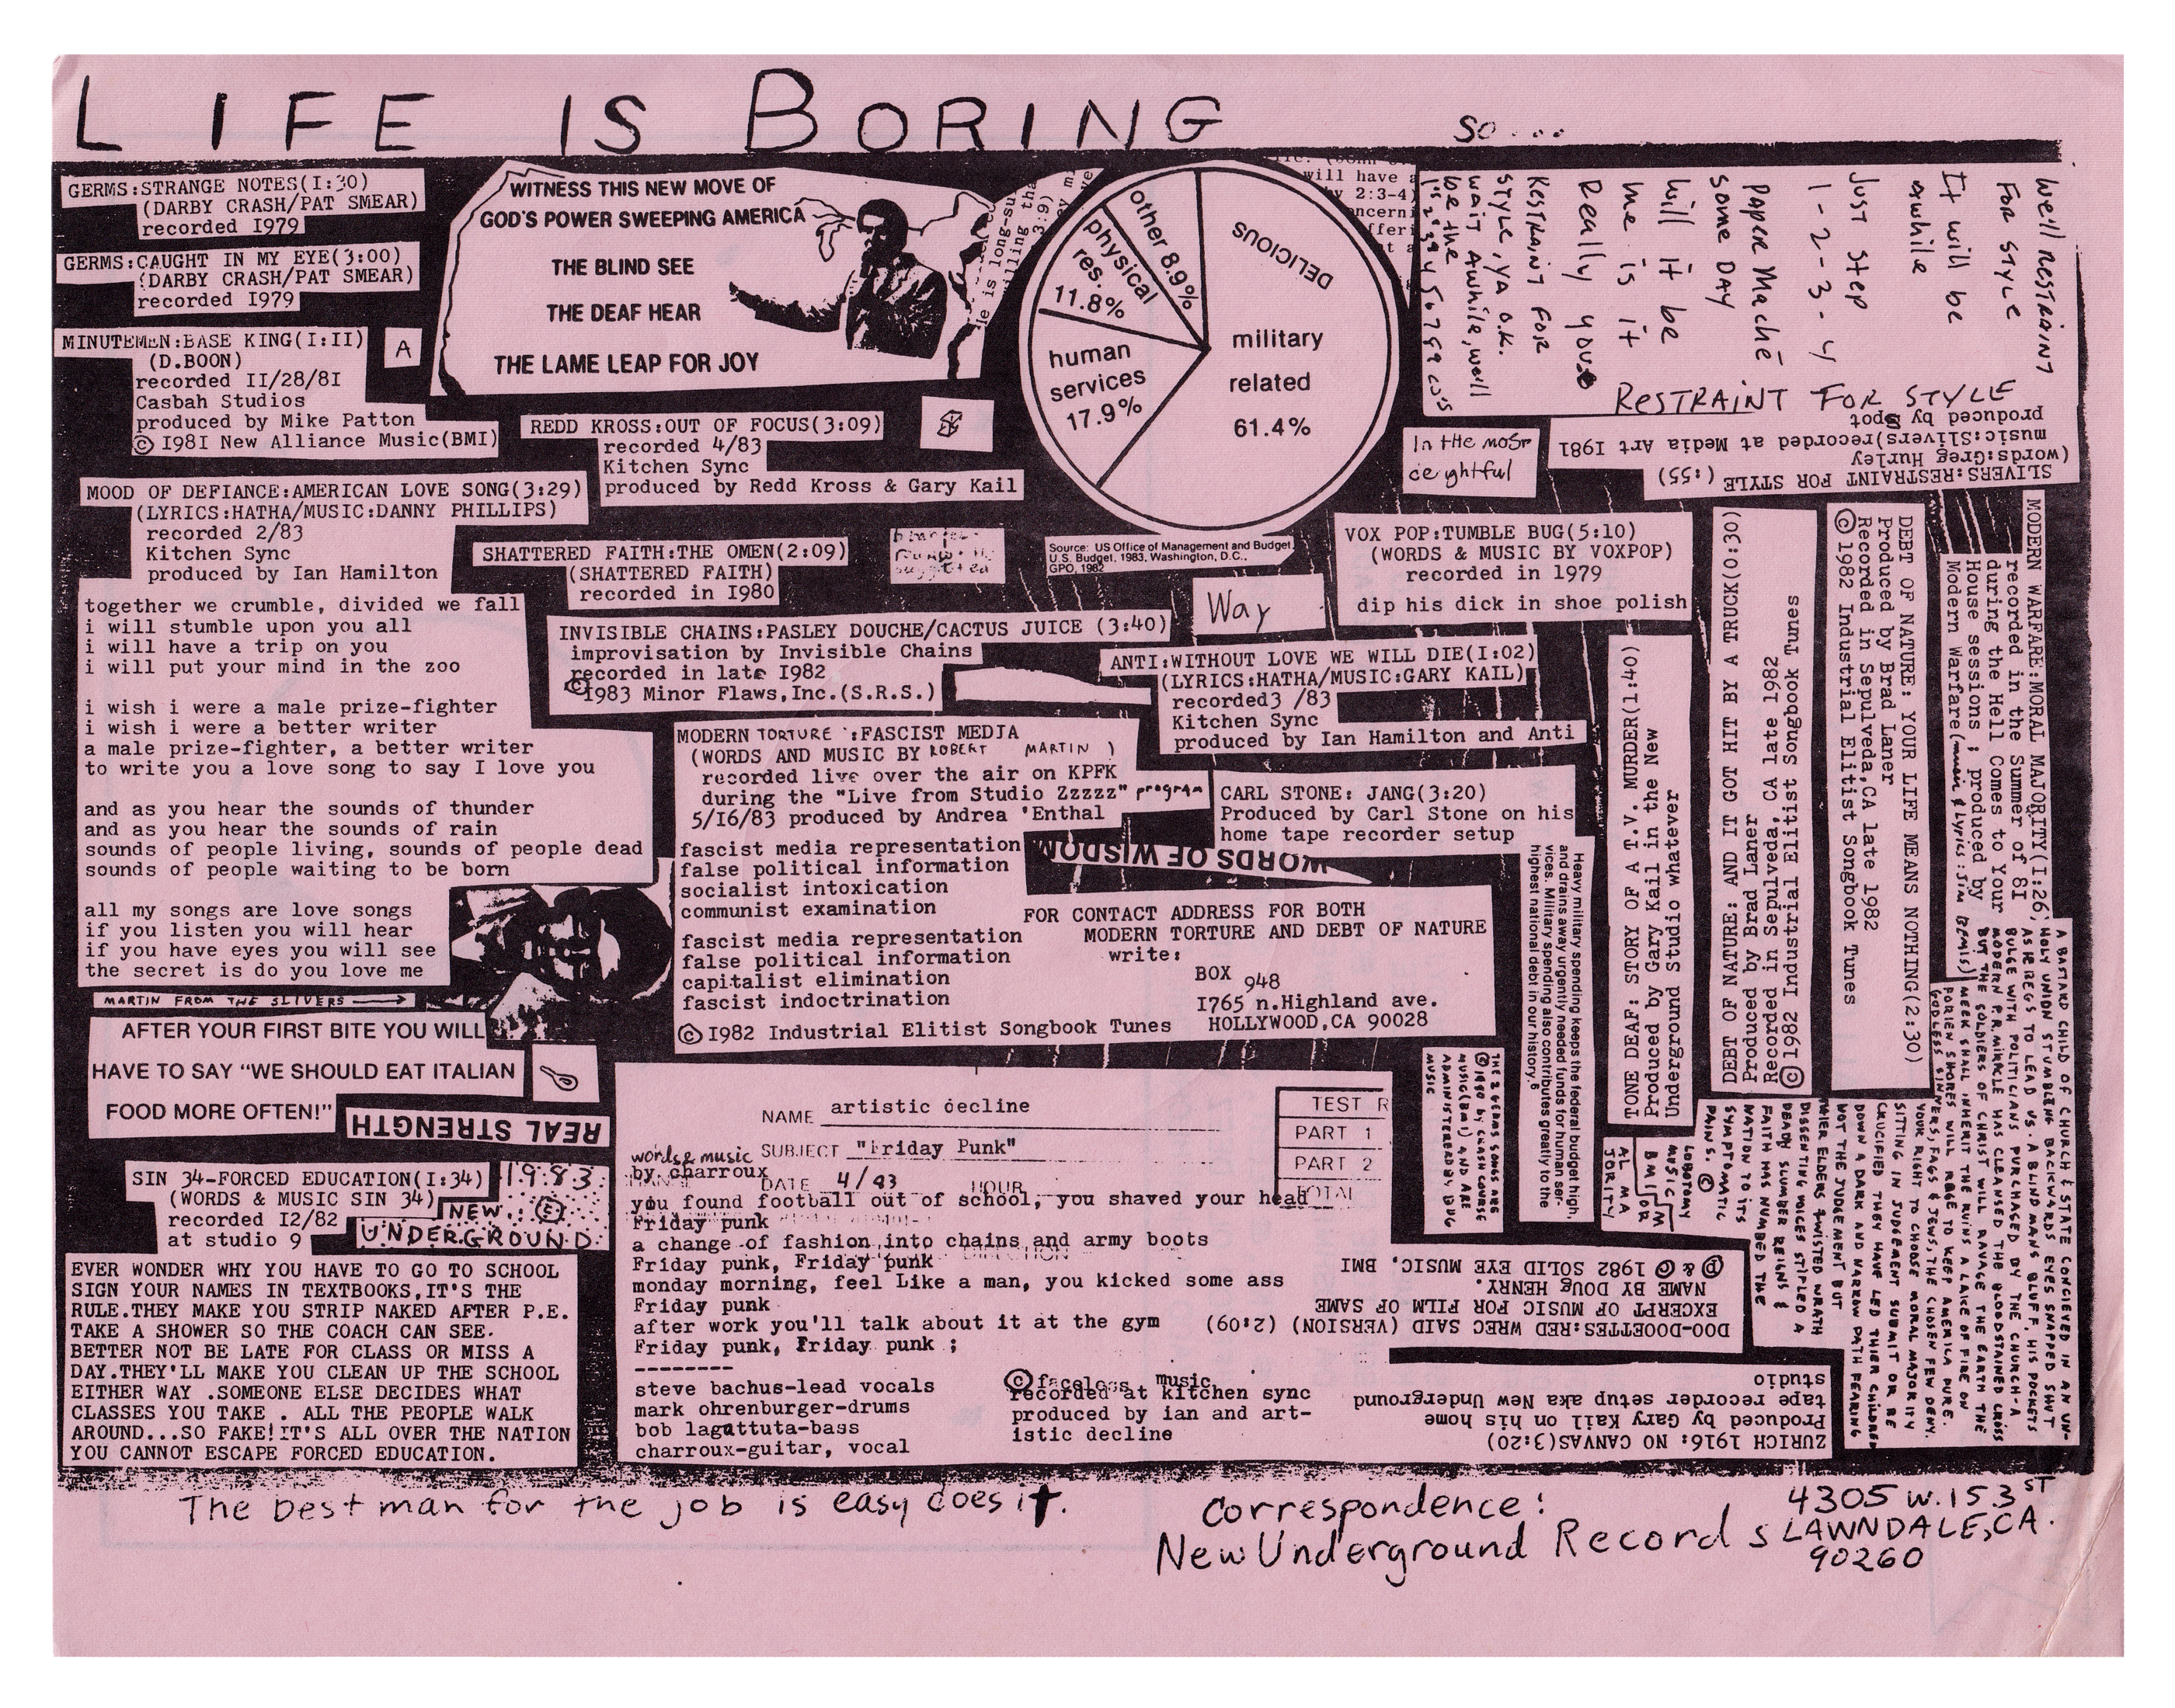 LIFE IS BORING so...
GERMS:STRANGE NOTES(I:30)
(DARBY CRASH/PAT SMEAR)
recorded I979
GERMS:CAUGHT IN MY EYE(3:00)
(DARBY CRASH/PAT SMEAR)
recorded I979
MINUTEMEN:BASE KING(I:II)
(D.BOON)
recorded II/28/8I
Casbah Studios
produced by Mike Patton
© I98I New Alliance Music(BMI)
A
MOOD OF DEFIANCE:AMERICAN LOVE SONG(3:29)
(LYRICS:HATHA/MUSIC:DANNY PHILLIPS)
recorded 2/83
Kitchen Sync
produced by Ian Hamilton
together we crumble, divided we fall
i will stumble upon you all
i will have a trip on you
i will put your mind in the zoo
i wish i were a male prize-fighter
i wish i were a better writer
a male prize-fighter, a better writer
to write you a love song to say I love you
and as you hear the sounds of thunder
and as you hear the sounds of rain
sounds of people living, sounds of people dead
sounds of people waiting to be born
all my songs are love songs
if you listen you will hear
if you have eyes you will see
the secret is do you love me
MARTIN FROM THE SLIVERS
AFTER YOUR FIRST BITE YOU WILL
HAVE TO SAY "WE SHOULD EAT ITALIAN
FOOD MORE OFTEN!"
REAL STRENGTH
SIN 34-FORCED EDUCATION(I:34)
(WORDS & MUSIC SIN 34)
recorded I2/82
at studio 9
1983
NEW
UNDERGROUND
EVER WONDER WHY YOU HAVE TO GO TO SCHOOL
SIGN YOUR NAMES IN TEXTBOOKS,IT'S THE
RULE.THEY MAKE YOU STRIP NAKED AFTER P.E.
TAKE A SHOWER SO THE COACH CAN SEE.
BETTER NOT BE LATE FOR CLASS OR MISS A
DAY.THEY'LL MAKE YOU CLEAN UP THE SCHOOL
EITHER WAY .SOMEONE ELSE DECIDES WHAT
CLASSES YOU TAKE . ALL THE PEOPLE WALK
AROUND...SO FAKE!IT'S ALL OVER THE NATION
YOU CANNOT ESCAPE FORCED EDUCATION.
WITNESS THIS NEW MOVE OF
GOD'S POWER SWEEPING AMERICA
THE BLIND SEE
THE DEAF HEAR
THE LAME LEAP FOR JOY
REDD KROSS:OUT OF FOCUS(3:09)
recorded 4/83
Kitchen Sync
produced by Redd Kross & Gary Kail
SHATTERED FAITH:THE OMEN(2:09)
(SHATTERED FAITH)
recorded in I980
INVISIBLE CHAINS:PASLEY DOUCHE/CACTUS JUICE (3:40)
improvisation by Invisible Chains
recorded in late I982
©1983 Minor Flaws,Inc.(S.R.S.)
MODERN TORTURE :FASCIST MEDIA
(WORDS AND MUSIC BY ROBERT MARTIN )
recorded live over the air on KPFK
during the "Live from Studio Zzzzz" program
5/16/83 produced by Andrea 'Enthal
fascist media representation
false political information
socialist intoxication
communist examination
fascist media representation
false political information
capitalist elimination
fascist indoctrination
© I982 Industrial Elitist Songbook Tunes
WORDS OF WISDOM
FOR CONTACT ADDRESS FOR BOTH
MODERN TORTURE AND DEBT OF NATURE
write:
BOX 948
I765 n.Highland ave.
HOLLYWOOD,CA 90028
NAME artistic decline
SUBJECT "Friday Punk"
words & music
by charroux
DATE 4/83 HOUR
TEST
PART 1
PART 2
TOTAL
you found football out of school, you shaved your head
Friday punk
a change of fashion into chains and army boots
Friday punk, Friday punk
monday morning, feel Like a man, you kicked some ass
Friday punk
after work you'll talk about it at the gym
Friday punk, Friday punk ;
steve bachus-lead vocals
mark ohrenburger-drums
bob lagattuta-bass
charroux-guitar, vocal
© faceless music
recorded at kitchen sync
produced by ian and art-
istic decline
DELICIOUS
other 8.9%
physical
res.
11.8%
human
services
17.9%
military
related
61.4%
Source: US Office of Management and Budget,
U.S. Budget, 1983, Washington, D.C.,
GPO, 1982
Way
In the most
We'll RESTRAINT
FOR STYLE
It will be
awhile
Just Step
1-2-3-4
Paper Maché
some DAY
will it be
me is it
Really you
RESTRAINT FOR
STYLE, ya o.k.
wait Awhile, we'll
be the
RESTRAINT FOR STYLE
SLIVERS:RESTRAINT FOR STYLE (:55)
(words:Greg Hurley
music:Slivers)recorded at Media Art 1981
produced by Spot
VOX POP:TUMBLE BUG(5:10)
(WORDS & MUSIC BY VOXPOP)
recorded in 1979
dip his dick in shoe polish
ANTI:WITHOUT LOVE WE WILL DIE(I:02)
(LYRICS:HATHA/MUSIC:GARY KAIL)
recorded3 /83
Kitchen Sync
produced by Ian Hamilton and Anti
CARL STONE: JANG(3:20)
Produced by Carl Stone on his
home tape recorder setup
Heavy military spending keeps the federal budget high,
and drains away urgently needed funds for human ser-
vices. Military spending also contributes greatly to the
highest national debt in our history.⁶
TONE DEAF: STORY OF A T.V. MURDER(1:40)
Produced by Gary Kail in the New
Underground Studio whatever
DEBT OF NATURE: AND IT GOT HIT BY A TRUCK(0:30)
Produced by Brad Laner
Recorded in Sepulveda, CA late 1982
© 1982 Industrial Elitist Songbook Tunes
DEBT OF NATURE: YOUR LIFE MEANS NOTHING(2:30)
Produced by Brad Laner
Recorded in Sepulveda,CA late 1982
© 1982 Industrial Elitist Songbook Tunes
MODERN WARFARE:MORAL MAJORITY(I:26)
recorded in the Summer of 8I
during the Hell Comes to Your
House sessions ; produced by
Modern Warfare(music & Lyrics:Jim Bemis)
A BASTARD CHILD OF CHURCH & STATE CONCIEVED IN AN UN-
HOLY UNION STUMBLING BACKWARDS EYES SNAPPED SHUT
AS HE REGS TO LEAD US. A BLIND MANS BLUFF, HIS POCKETS
BULGE WITH POLITICIANS PURCHASED BY THE CHURCH-A
MODERN P.R. MIRACLE HAS CLEANSED THE BLOODSTAINED CROSS
BUT THE SOLDIERS OF CHRIST WILL RAVAGE THE EARTH THE
MEEK SHALL INHERIT THE RUINS A LAKE OF FIRE ON
FORIEN SHORES WILL RAGE TO KEEP AMERICA PURE.
GODLESS SINNERS, FAGS & JEWS, THE CHOSEN FEW DENY.
YOUR RIGHT TO CHOOSE MORAL MAJORITY
SITTING IN JUDGEMENT SUBMIT OR BE
CRUCIFIED THEY HAVE LED THIER CHILDREN
DOWN A DARK AND NARROW PATH FEARING
NOT THE JUDGEMENT BUT
THIER ELDERS TWISTED WRATH
DISSENTING VOICES STIPLED A
DEADLY SLUMBER REIGNS &
FAITH HAS NUMBED THE
NATION TO ITS
SYMPTOMATIC
PAINS. ©
LOBOTOMY
MUSIC
BMI
THE 2 GERMS SONGS ARE
© 1980 by CRASH COURSE
MUSIC(BMI) AND ARE
ADMINISTERED BY BUG
MUSIC
DOO-DOOETTES:RED WREC SAID (VERSION) (2:09)
EXCERPT OF MUSIC FOR FILM OF SAME
NAME BY DOUG HENRY.
℗ & © 1982 SOLID EYE MUSIC, BMI
ZURICH 1916: NO CANVAS(3:20)
Produced by Gary Kail on his home
tape recorder setup aka New Underground
studio
The best man for the job is easy does it.
Correspondence:
New Underground Records
4305 W. 153 ST
LAWNDALE, CA.
90260